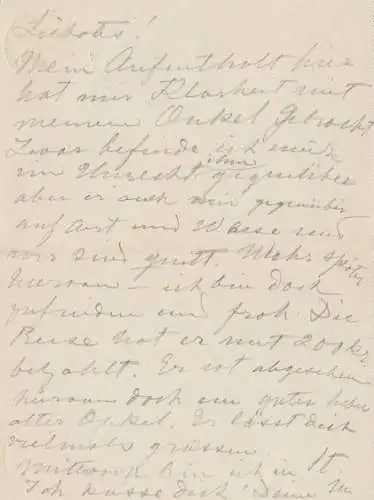 Liebots!
Mein Aufenthalt hier
hat mir Klarheit mit
meinem Onkel gebracht.
Zwar befinde ich mich
im Unrecht ihm gegenüber
aber er auch mir gegenüber
auf Art und Weise und
wir sind quitt. Mehr später
hievon – ich bin doch
zufrieden und froh. Die
Reise hat er mit 200 kr.
bezahlt. Er ist abgesehen
hievon doch ein guter
alter Onkel. Er lässt dich
vielmals grüssen.
Mittwoch bin ich in St.
Ich küsse dich! Deine M